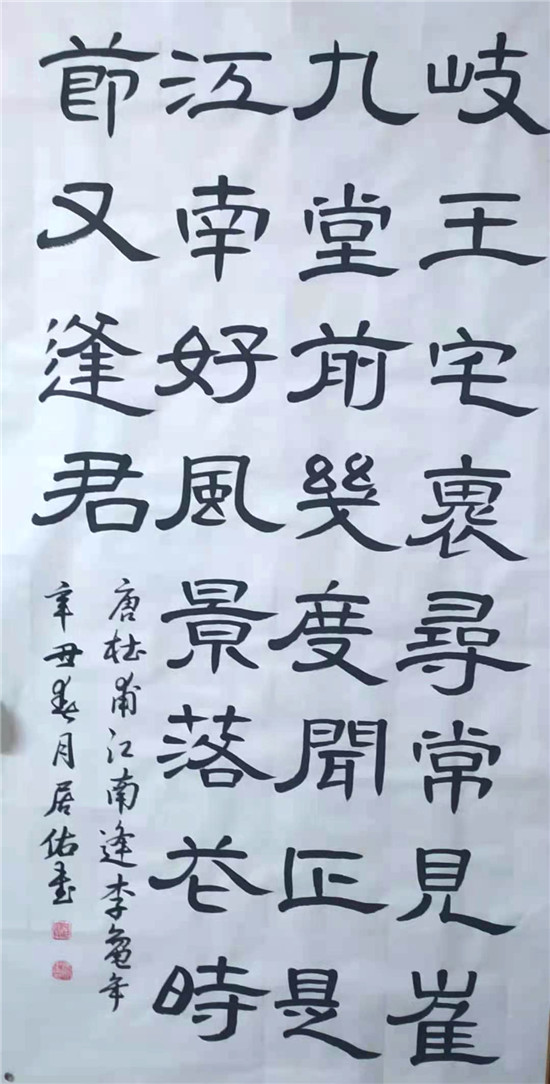 岐王宅裏尋常見崔
九堂前幾度聞正是
江南好風景落花時
節又逢君
唐杜甫江南逢李龜年
辛丑春月居佑書